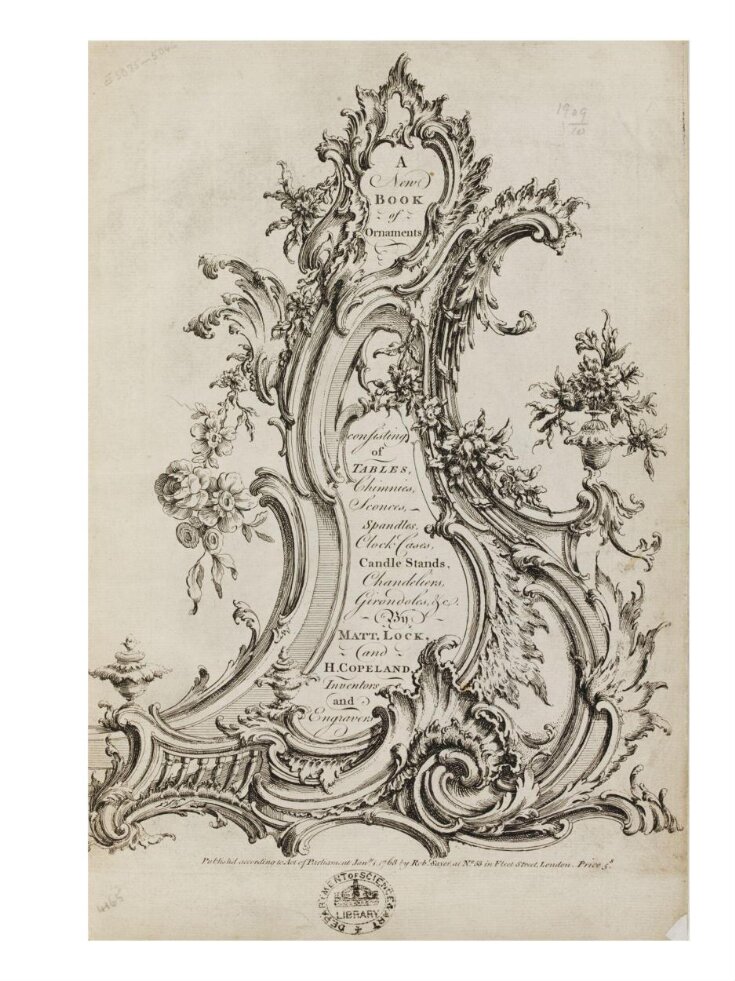 A
New
BOOK
of
Ornaments
consisting
of
TABLES,
Chimnies,
Sconces,
Spandles,
Clock Cases,
Candle Stands,
Chandeliers,
Girondoles, &c.
By
MATT, LOCK,
and
H. COPELAND,
Inventors
and
Engravers
Publish'd according to Act of Parliament Jany. 1, 1768, by Robt. Sayer, at No. 53 in Fleet Street, London. Price 5s
1909
10
DEPARTMENT OF SCIENCE & ART
LIBRARY